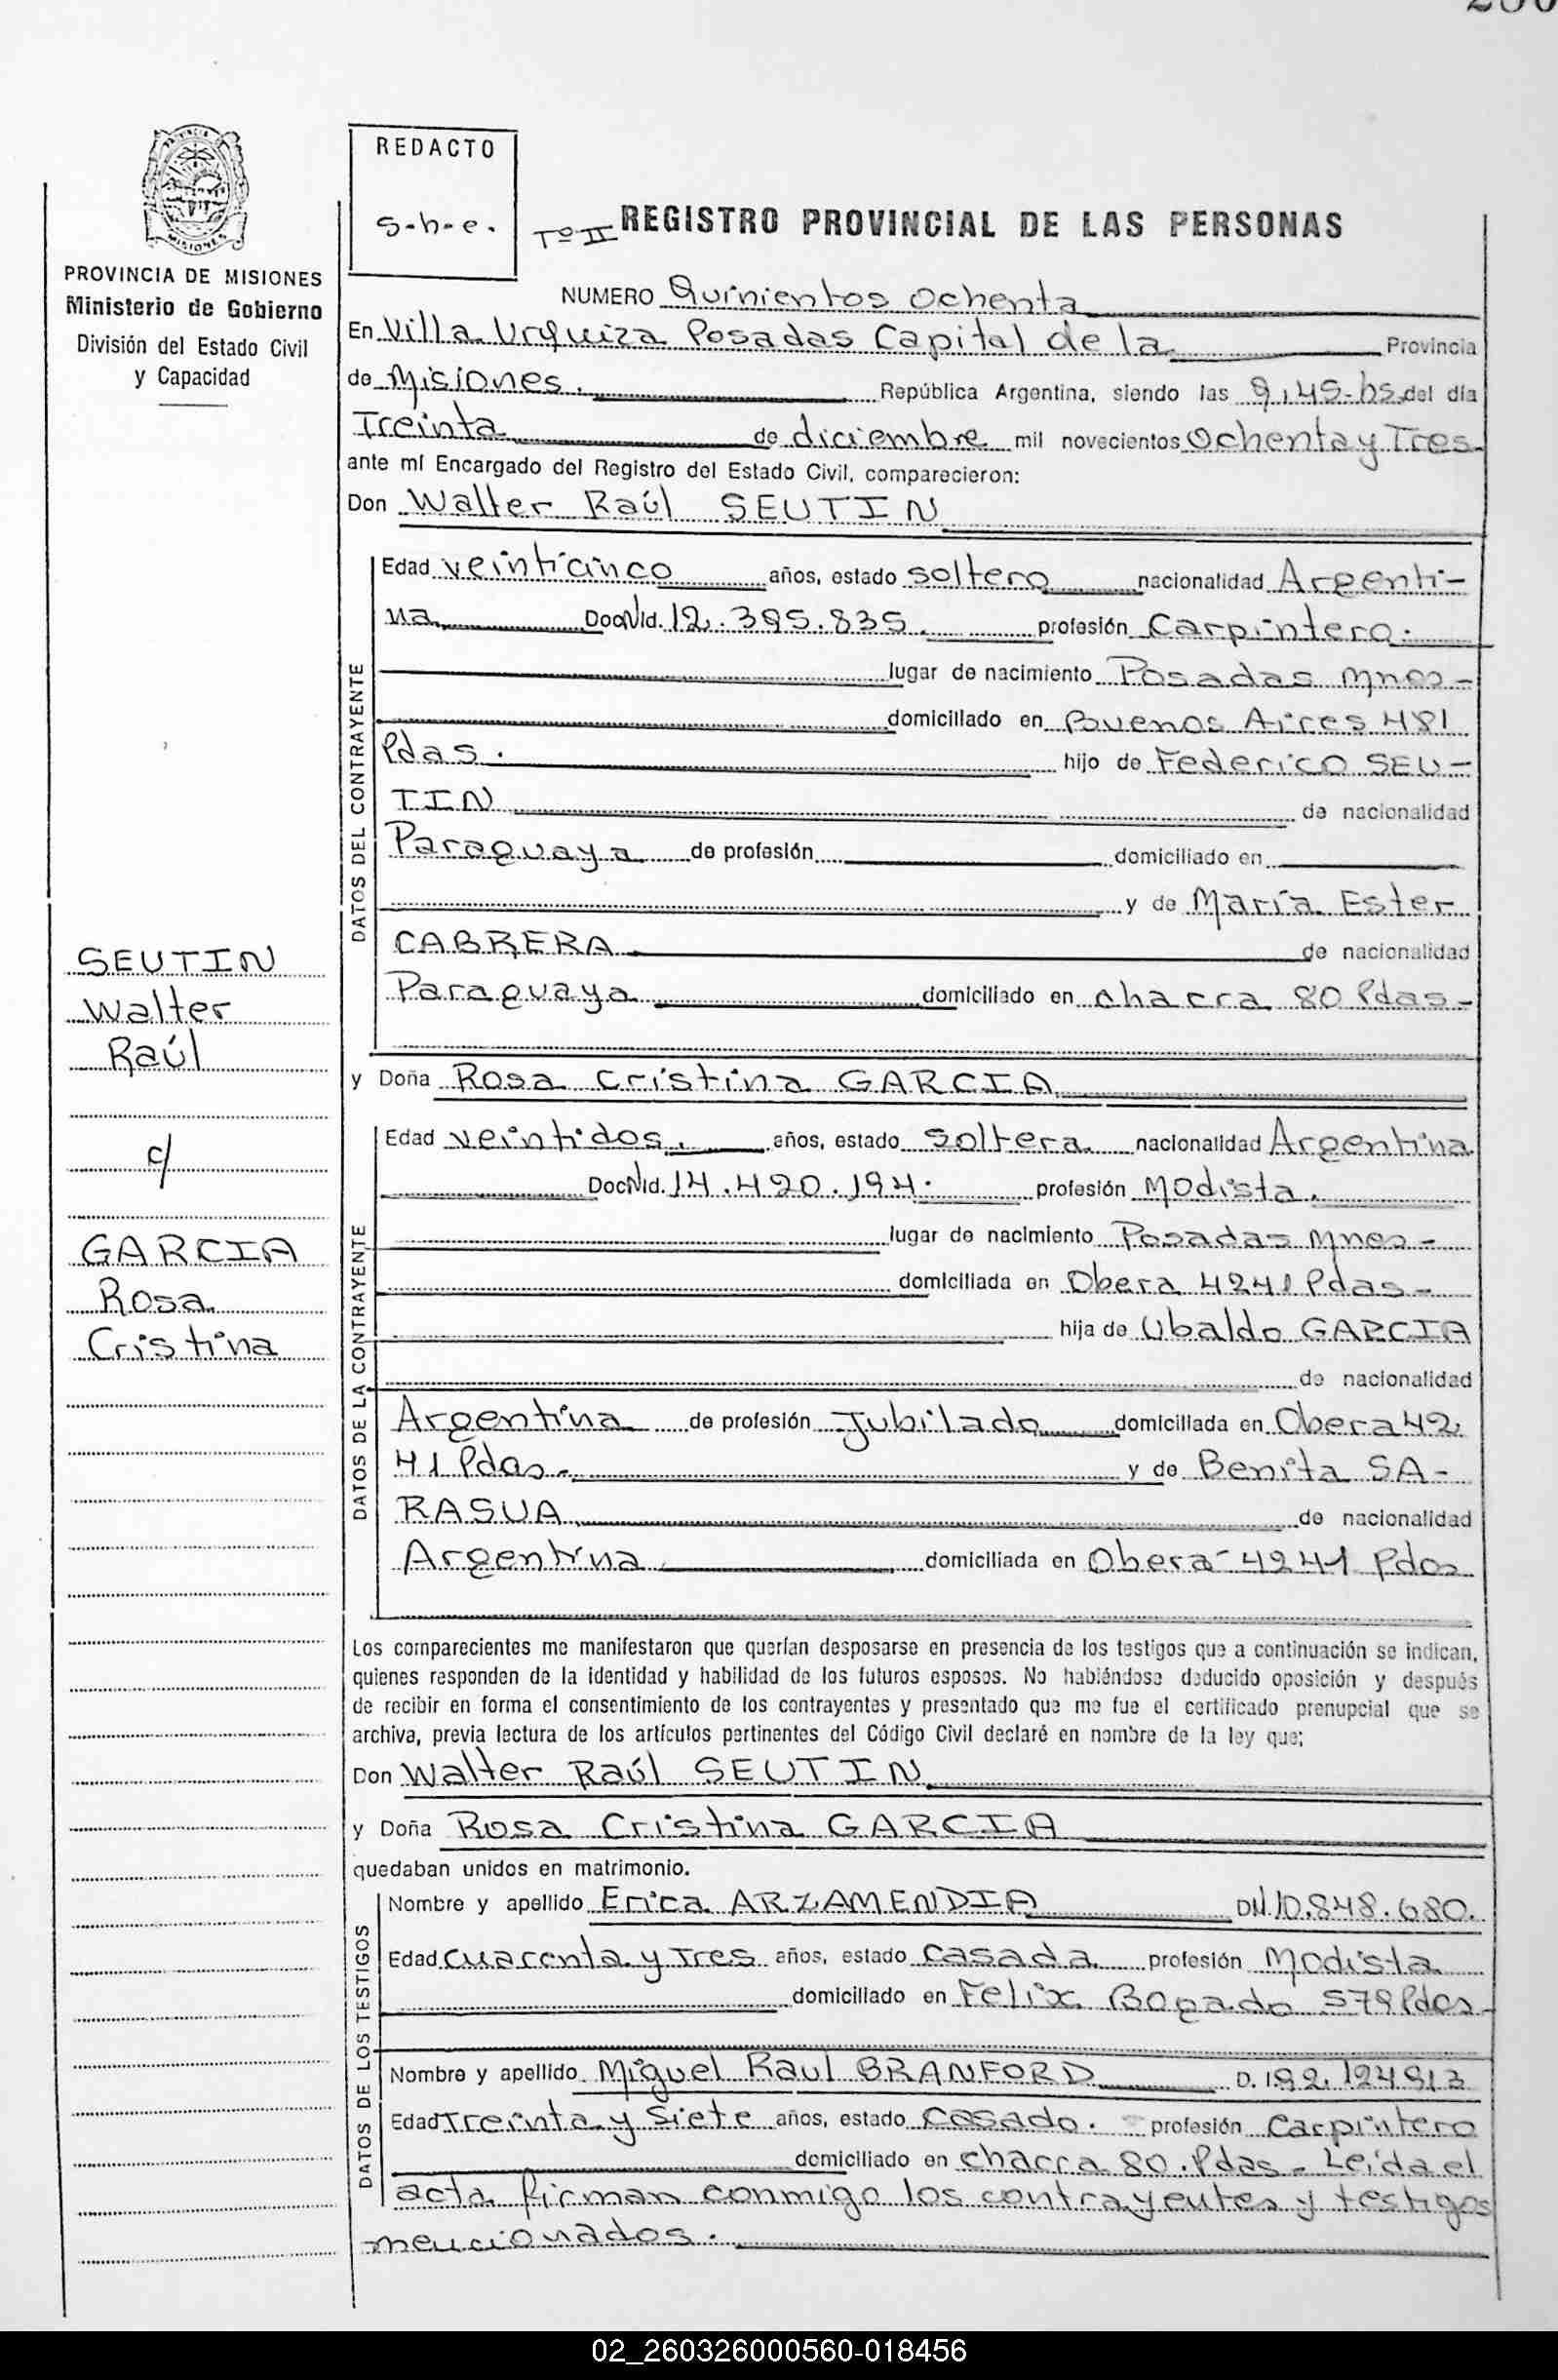 REDACTO
s-h-e.
Tº II REGISTRO PROVINCIAL DE LAS PERSONAS
PROVINCIA DE MISIONES
Ministerio de Gobierno
División del Estado Civil
y Capacidad
NUMERO Quinientos Ochenta
En Villa Urquiza Posadas Capital de la Provincia
de Misiones. República Argentina, siendo las 9,45-hs. del día
Treinta de diciembre mil novecientos Ochenta y Tres
ante mí Encargado del Registro del Estado Civil, comparecieron:
Don Walter Raúl SEUTIN
DATOS DEL CONTRAYENTE
Edad veinticinco años, estado soltero nacionalidad Argenti-
na Doc. Nº Id. 12.395.835. profesión Carpintero.
lugar de nacimiento Posadas Mnes-
domiciliado en Buenos Aires 481
Pdas. hijo de Federico SEU-
TIN de nacionalidad
Paraguaya de profesión domiciliado en
y de María Ester
CABRERA de nacionalidad
Paraguaya domiciliado en chacra 80 Pdas-
SEUTIN
Walter
Raúl
c/
GARCIA
Rosa
Cristina
y Doña Rosa Cristina GARCIA
DATOS DE LA CONTRAYENTE
Edad veintidos. años, estado soltera nacionalidad Argentina
Doc. Nº Id. 14.490.194. profesión Modista.
lugar de nacimiento Posadas Mnes-
domiciliada en Obera 4241 Pdas-
hija de Ubaldo GARCIA
de nacionalidad
Argentina de profesión Jubilado domiciliada en Obera 42
41 Pdas- y de Benita SA-
RASUA de nacionalidad
Argentina domiciliada en Obera-4241 Pdas
Los comparecientes me manifestaron que querían desposarse en presencia de los testigos que a continuación se indican,
quienes responden de la identidad y habilidad de los futuros esposos. No habiéndose deducido oposición y después
de recibir en forma el consentimiento de los contrayentes y presentado que me fue el certificado prenupcial que se
archiva, previa lectura de los artículos pertinentes del Código Civil declaré en nombre de la ley que;
Don Walter Raúl SEUTIN
y Doña Rosa Cristina GARCIA
quedaban unidos en matrimonio.
DATOS DE LOS TESTIGOS
Nombre y apellido Erica ARZAMENDIA DNI.10.848.680.
Edad cuarenta y Tres años, estado casada profesión Modista
domiciliado en Felix Bogado 579 Pdas-
Nombre y apellido Miguel Raul BRANFORD
Edad Treinta y Siete años, estado casado. profesión Carpintero
domiciliado en chacra 80. Pdas- Leída el
acta firman conmigo los contrayentes y testigos
mencionados.
02_260326000560-018456